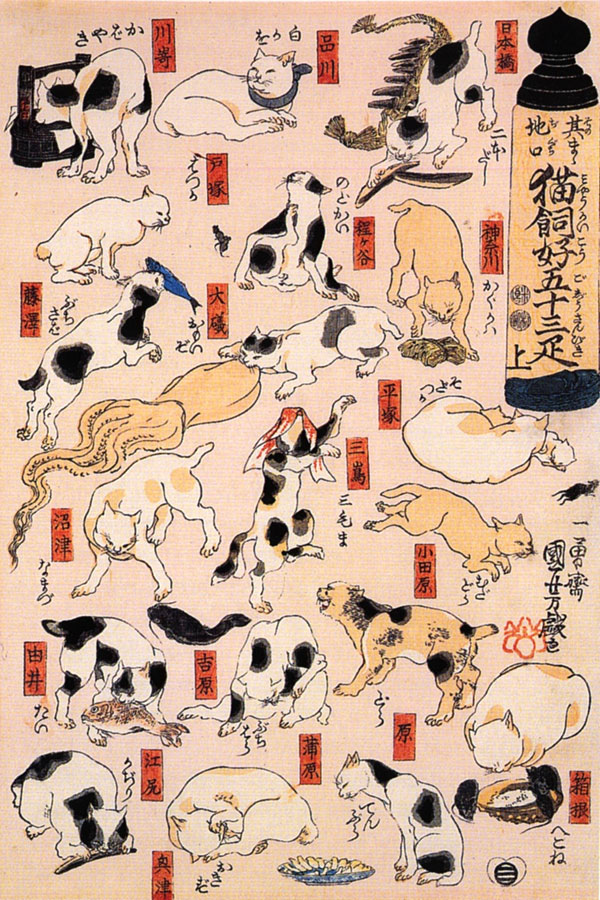 其まゝ
地口
猫飼好五十三疋
上
日本橋
二本だし
品川
白かを
川嵜
かばやき
神奈川
かぐかハ
程ヶ谷
のどかい
戸塚
はつか
藤澤
ぶちさば
大磯
おもいぞ
平塚
そだつか
小田原
むだどら
三嶌
三毛ま
沼津
なまづ
箱根
へこね
原
どら
吉原
ぶちはら
由井
たい
蒲原
てんぷら
江尻
かぢり
奥津
おきず
一勇齋
國芳戯画